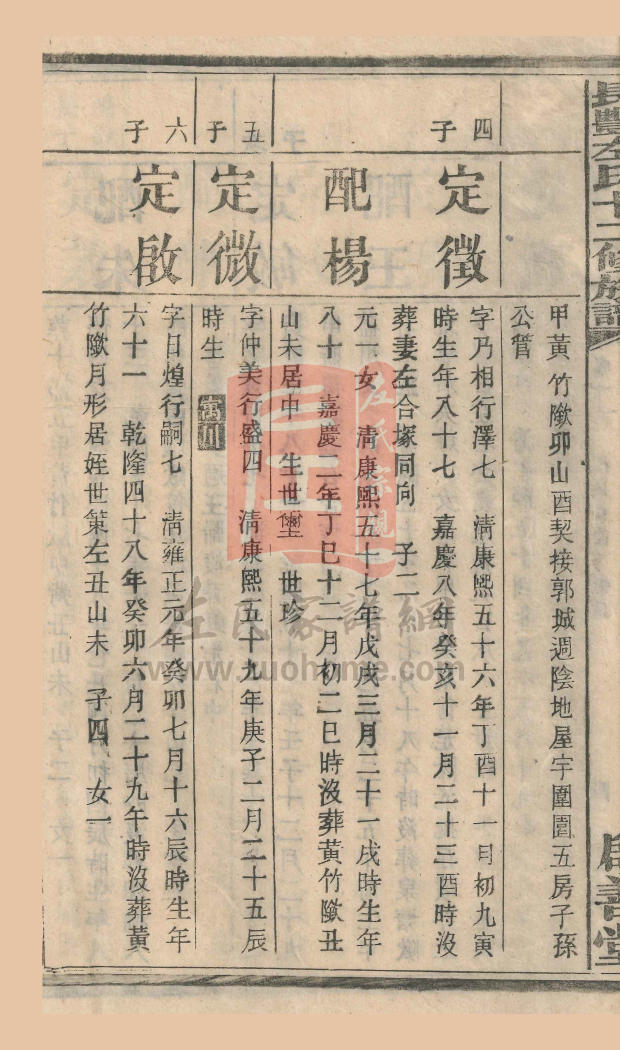 長豐左氏十二修族譜
啟善堂
甲黃竹歞卯山酉契接郭城週陰地屋宇圍園五房子孫
公管
四子
定徵
字乃相行澤七 清康熙五十六年丁酉十一月初九寅
時生年八十七 嘉慶八年癸亥十一月二十三酉時沒
葬妻左合塚同向 子二
配楊
元一女 清康熙五十七年戊戌三月二十一戌時生年
八十 嘉慶二年丁巳十二月初二巳時沒葬黃竹歞丑
山未居中 生世壐 世珍
五子
定微
字仲美行盛四 清康熙五十九年庚子二月二十五辰
時生 寓川
六子
定啟
字日煌行嗣七 清雍正元年癸卯七月十六辰時生年
六十一 乾隆四十八年癸卯六月二十九午時沒葬黃
竹歞月形居姪世策左丑山未 子四 女一
左氏宗親
左氏家譜網
www.zuohome.com